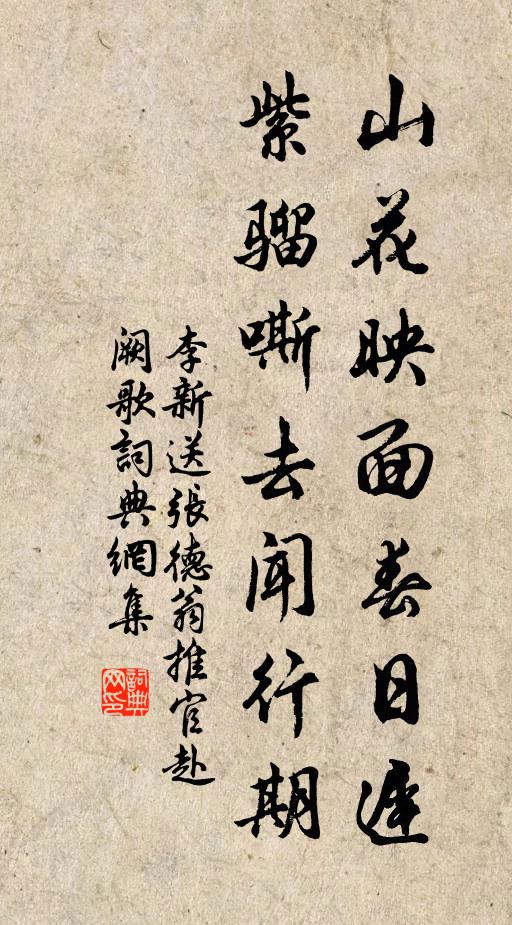 山花映面春日遲
紫騮嘶去闻行期
李新送張德翁推官赴
阙歌詞典網集
詞典网印